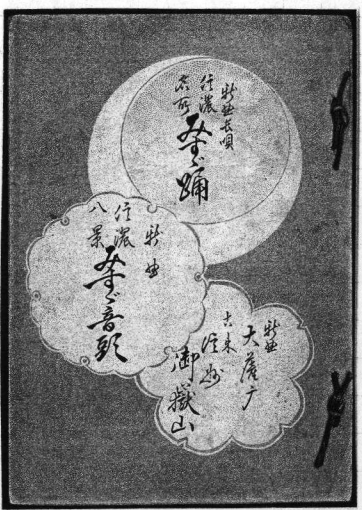 新曲長唄
信濃
名所
みすゞ踊
新曲
信濃
八景
みすゞ音頭
新曲
大薩广
古来
信州
御嶽山